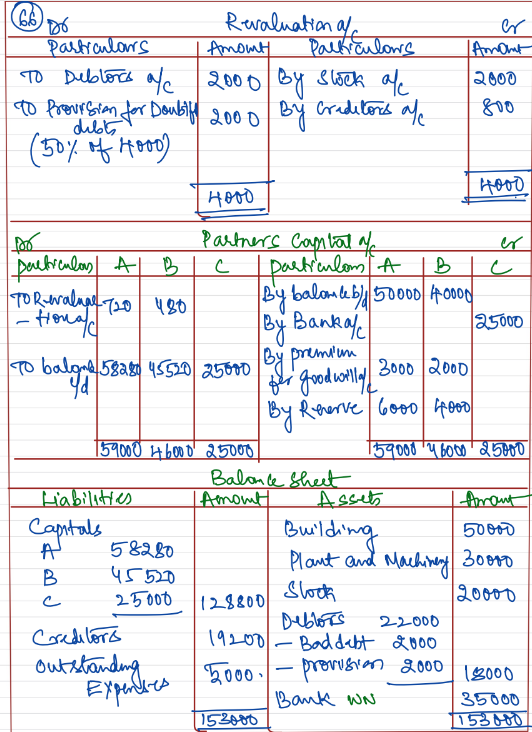 66 Dr Revaluation a/c Cr
Particulars Amount Particulars Amount
To Debtors a/c 2000 By Stock a/c 2000
To Provision for Doubtful debts 2000 By Creditors a/c 800
(50% of 4000)
4000 4000
Dr Partners Capital a/c Cr
Particulars A B C Particulars A B C
To Revaluation a/c 720 480 By balance b/d 50000 40000
By Bank a/c 25000
To balance c/d 58280 45520 25000 By premium for goodwill a/c 3000 2000
By Reserve 6000 4000
59000 46000 25000 59000 46000 25000
Balance Sheet
Liabilities Amount Assets Amount
Capitals Building 50000
A 58280 Plant and Machinery 30000
B 45520 Stock 20000
C 25000 128800 Debtors 22000
Creditors 19200 - Bad debt 2000
Outstanding Expenses 5000. - provision 2000 18000
Bank WN 35000
153000 153000